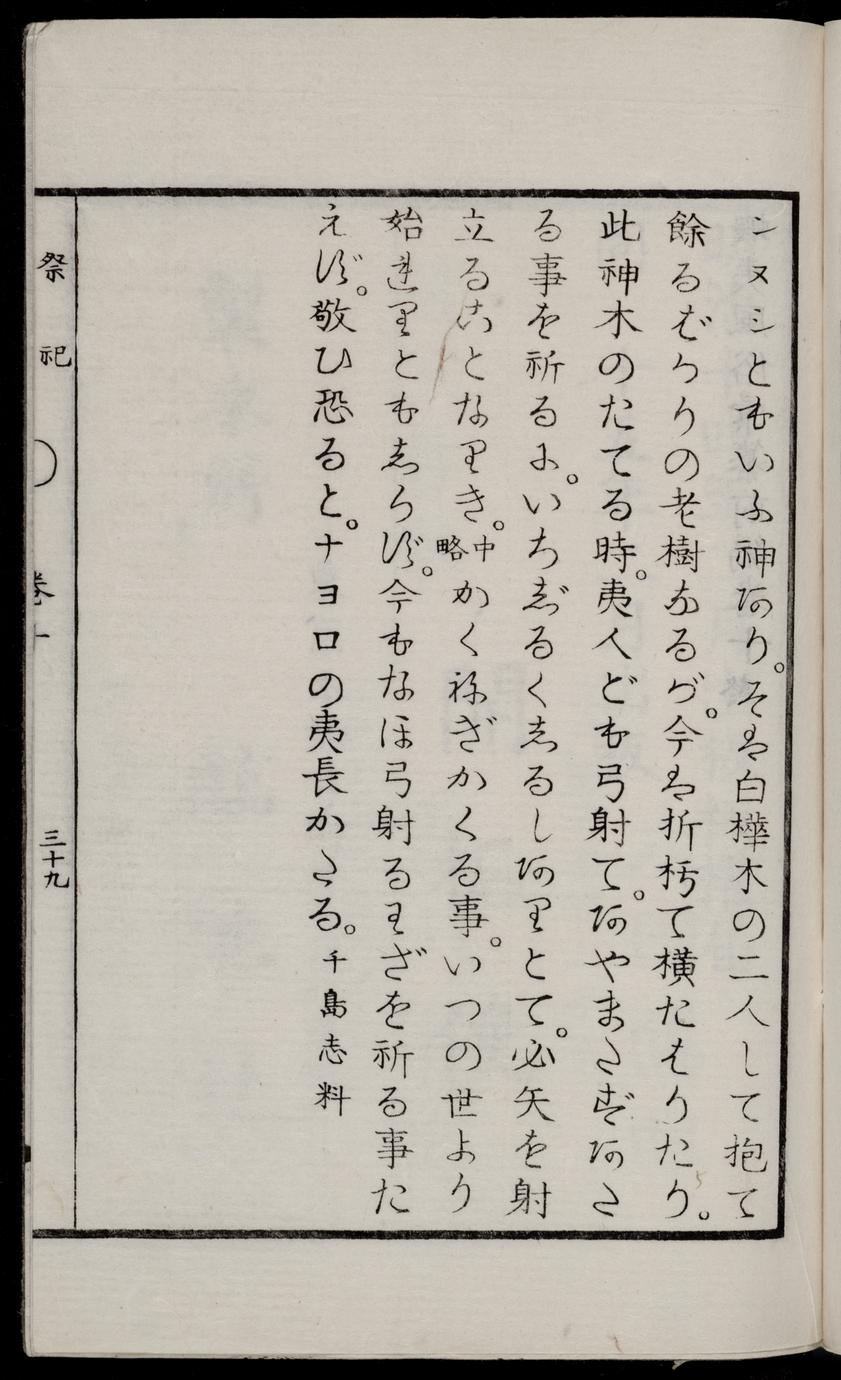 ンヌシともいふ神あり。そは白樺木の二人して抱て
餘るばかりの老樹なるが。今は折朽て横たはりたり。
此神木のたてる時。夷人ども弓射て。あやまたずあた
る事を祈るに。いちじるくしるしありとて。必矢を射
立ることなりき。中略かくねぎかくる事。いつの世より
始れりともしらず。今もなほ弓射るわざを祈る事た
えず。敬ひ恐ると。ナヨロの夷長かたる。千島志料
祭祀 巻十 三十九